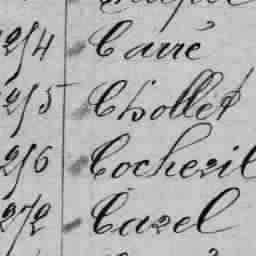 254 Carré
255 Chollet
256 Cocheril
272 Cazel